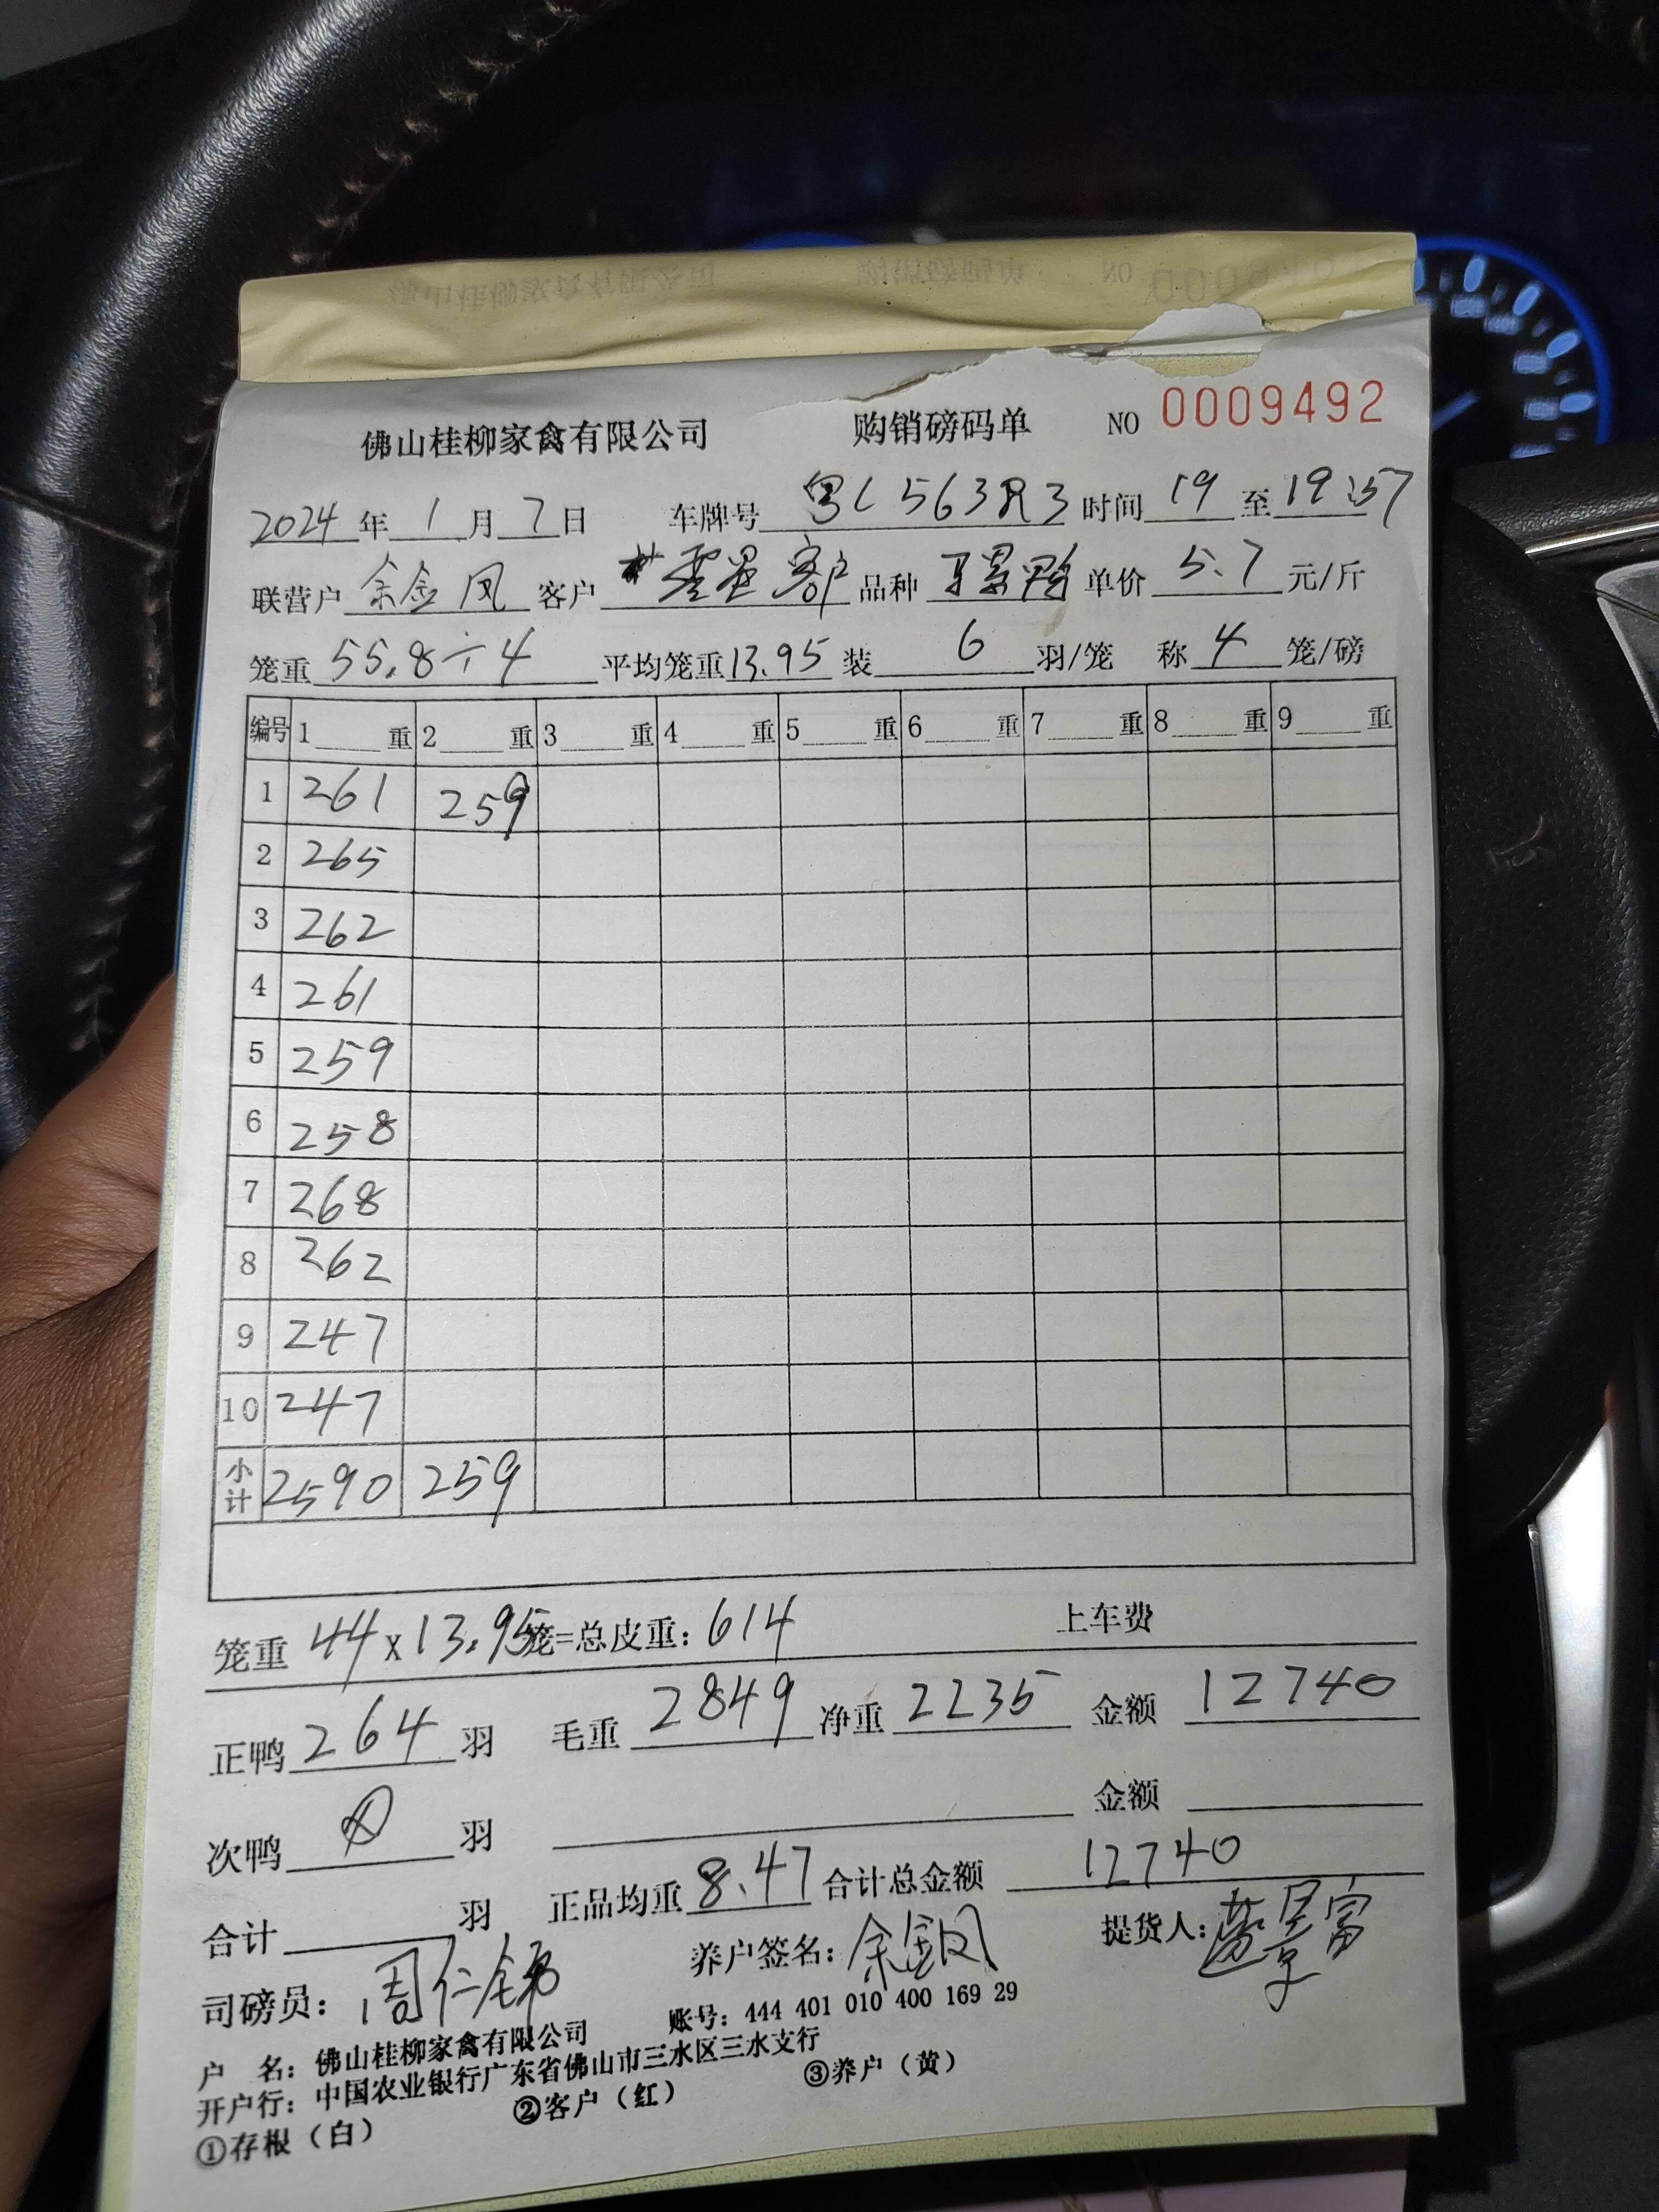 佛山桂柳家禽有限公司 购销磅码单 NO 0009492
2024年1月7日 车牌号 粤C563R3 时间19至19:57
联营户 余金凤 客户 客户 品种 鸭 单价 5.7 元/斤
笼重 55.8÷4 平均笼重 13.95 装 6 羽/笼 称 4 笼/磅
编号 1 重 2 重 3 重 4 重 5 重 6 重 7 重 8 重 9 重
1 261 259
2 265
3 262
4 261
5 259
6 258
7 268
8 262
9 247
10 247
小计 2590 259
笼重 44x13.95笼=总皮重:614 上车费
正鸭 264 羽 毛重 2849 净重 2235 金额 12740
次鸭 羽 金额
合计 羽 正品均重 8.47 合计总金额 12740
司磅员: 周仁锦 养户签名: 余金凤 提货人:
户 名: 佛山桂柳家禽有限公司 账号: 444 401 010 400 169 29
开户行: 中国农业银行广东省佛山市三水区三水支行
①存根(白) ②客户(红) ③养户(黄)